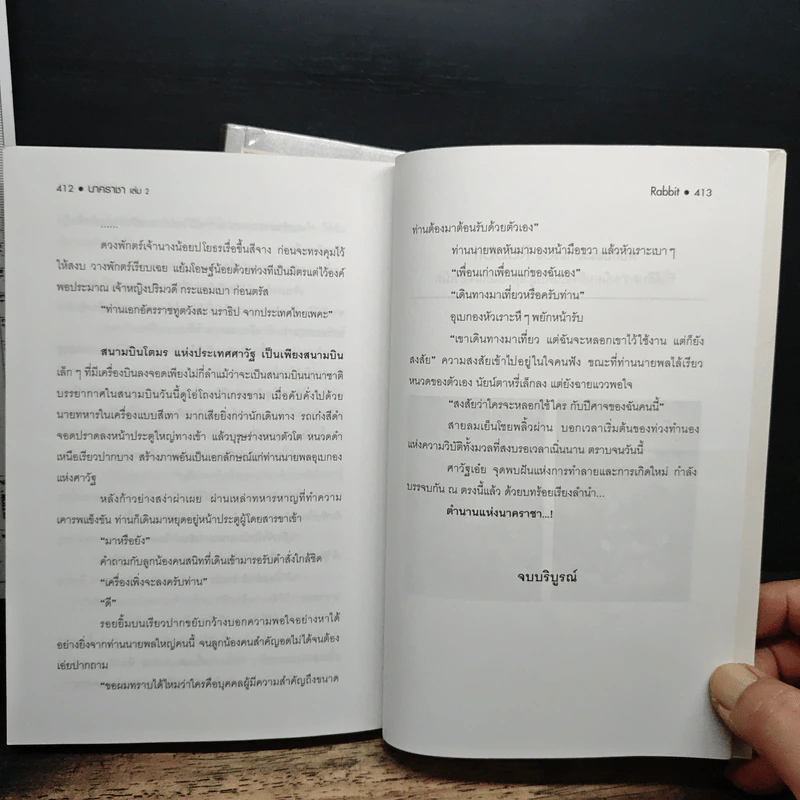 412 ● นาคราชา เล่ม 2
......
ดวงพักตร์เจ้านางน้อยปโยธรเรื่อขึ้นสีจาง ก่อนจะทรงคุมไว้
ให้สงบ วางพักตร์เรียบเฉย แย้มโอษฐ์น้อยด้วยท่วงทีเป็นมิตรแต่ไว้องค์
พอประมาณ เจ้าหญิงปริมวดี กระแอมเบา ก่อนตรัส
“ท่านเอกอัครราชทูตวังสะ นราธิป จากประเทศไทยเพคะ”
สนามบินโตมร แห่งประเทศศาวัฐ เป็นเพียงสนามบิน
เล็กๆ ที่มีเครื่องบินลงจอดเพียงไม่กี่ลำแม้ว่าจะเป็นสนามบินนานาชาติ
บรรยากาศในสนามบินวันนี้ดูโอ่โถงน่าเกรงขาม เมื่อคับคั่งไปด้วย
นายทหารในเครื่องแบบสีเทา มากเสียยิ่งกว่านักเดินทาง รถเก๋งสีดำ
จอดปราดลงหน้าประตูใหญ่ทางเข้า แล้วบุรุษร่างหนาตัวโต หนวดดำ
เหนือเรียวปากบาง สร้างภาพอันเป็นเอกลักษณ์แก่ท่านนายพลอุเบกอง
แห่งศาวัฐ
หลังก้าวย่างสง่าผ่าเผย ผ่านเหล่าทหารหาญที่ทำความ
เคารพแข็งขัน ท่านก็เดินมาหยุดอยู่หน้าประตูผู้โดยสารขาเข้า
“มาหรือยัง”
คำถามกับลูกน้องคนสนิทที่เดินเข้ามารอรับคำสั่งใกล้ชิด
“เครื่องเพิ่งจะลงครับท่าน”
“ดี”
รอยยิ้มบนเรียวปากขยับกว้างบอกความพอใจอย่างหาได้
อย่างยิ่งจากท่านนายพลใหญ่คนนี้ จนลูกน้องคนสำคัญอดไม่ได้จนต้อง
เอ่ยปากถาม
“ขอผมทราบได้ไหมว่าใครคือบุคคลผู้มีความสำคัญถึงขนาด
Rabbit ● 413
ท่านต้องมาต้อนรับด้วยตัวเอง”
ท่านนายพลหันมามองหน้ามือขวา แล้วหัวเราะเบาๆ
“เพื่อนเก่าเพื่อนแก่ของฉันเอง”
“เดินทางมาเที่ยวหรือครับท่าน”
อุเบกองหัวเราะหึๆ พยักหน้ารับ
“เขาเดินทางมาเที่ยว แต่ฉันจะหลอกเขาไว้ใช้งาน แต่ก็ยัง
สงสัย” ความสงสัยเข้าไปอยู่ในใจคนฟัง ขณะที่ท่านนายพลไล้เรียว
หนวดของตัวเอง นัยน์ตาหรี่เล็กลง แต่ยังฉายแววพอใจ
“สงสัยว่าใครจะหลอกใช้ใคร กับปีศาจของฉันคนนี้”
สายลมเย็นโชยพลิ้วผ่าน บอกเวลาเริ่มต้นของท่วงทำนอง
แห่งความวิบัติทั้งมวลที่สงบรอเวลาเนิ่นนาน ตราบจนวันนี้
ศาวัฐเอ๋ย จุดพบผันแห่งการทำลายและการเกิดใหม่ กำลัง
บรรจบกัน ณ ตรงนี้แล้ว ด้วยบทร้อยเรียงลำนำ...
ตำนานแห่งนาคราชา...!
จบบริบูรณ์